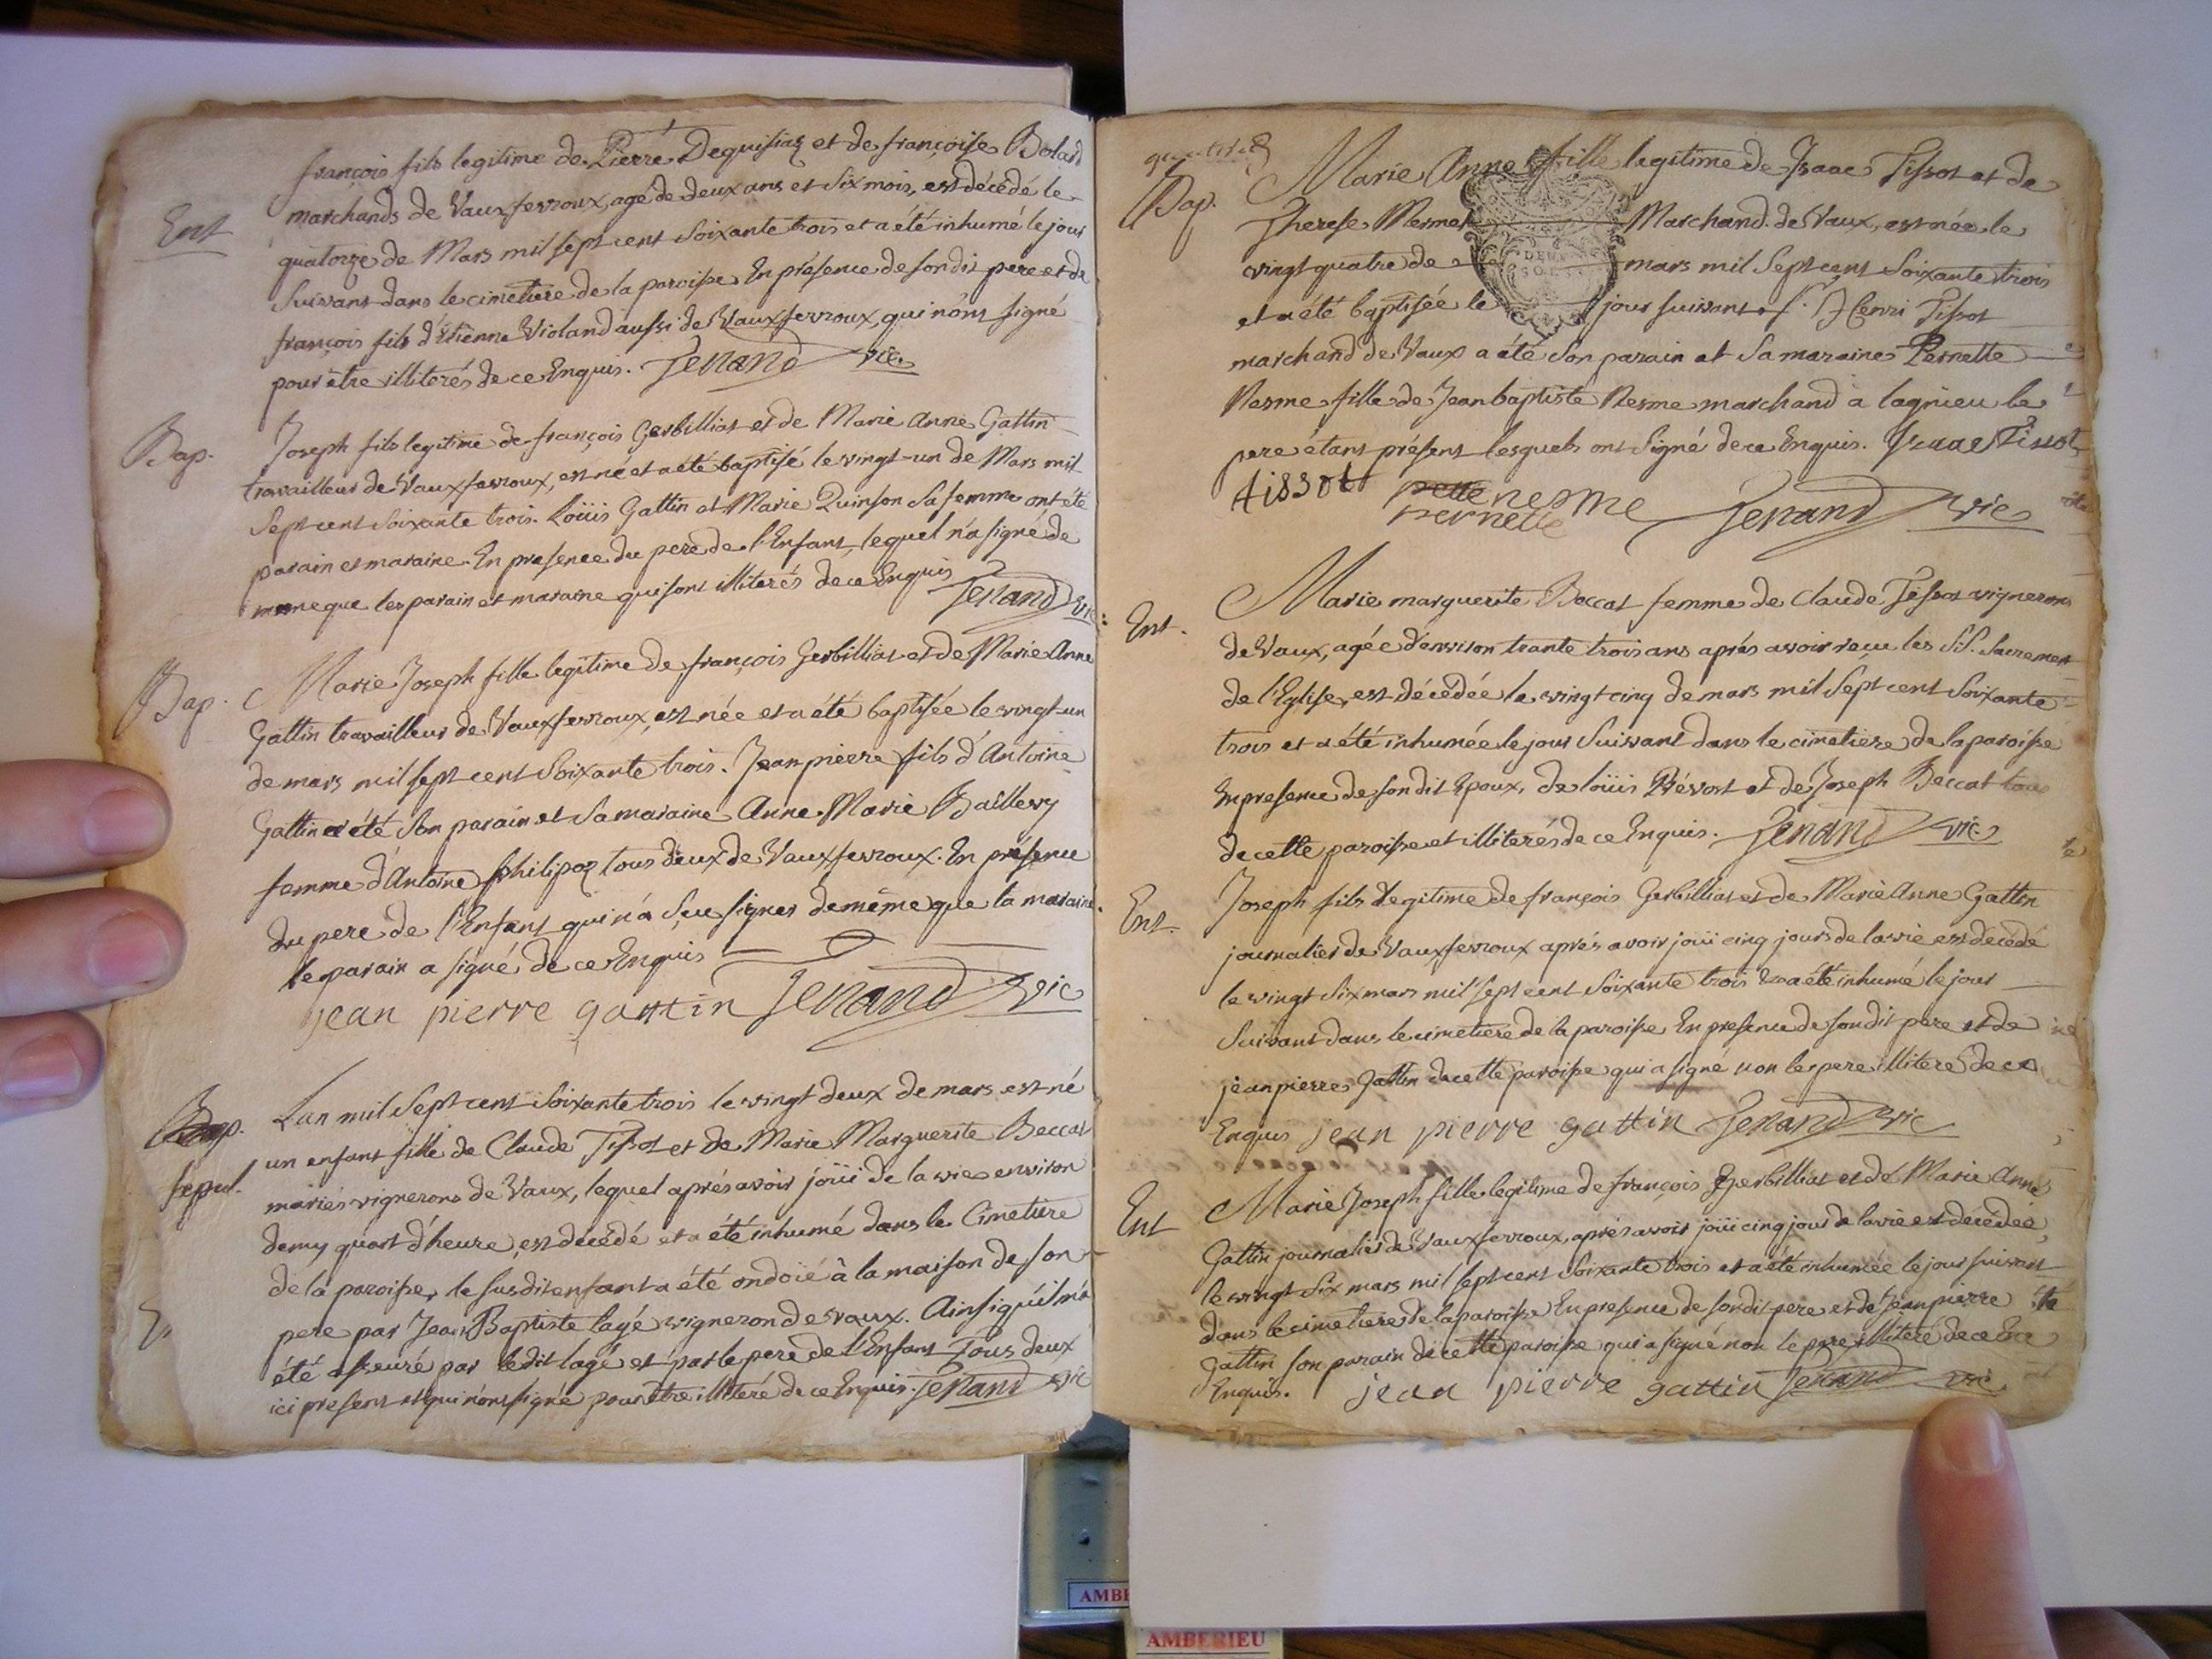 françois fils legitime de Pierre Dequisiaz et de françoise Bolard
Ent
marchands de Vauxferroux, agé de deux ans et six mois, est décédé le
quatorze de Mars mil sept cent soixante trois et a été inhumé le jour
suivant dans le cimetiere de la paroisse En présence de son dit pere et de
françois fils d'Etienne Violand aussi de Vauxferroux, qui n'ont signé
pour être illiterés de ce Enquis. Jenand vic.
Bap.
Joseph fils legitime de françois Gerbilliat et de Marie Anne Gattin
travailleur de Vauxferroux, est né et a été baptisé le vingt-un de Mars mil
sept cent soixante trois. Loüis Gattin et Marie Quinson sa femme ont été
parain et maraine. En presence du pere de l'Enfant, lequel n'a signé de
meme que les parain et maraine qui sont illiterés de ce Enquis Jenand vic
Bap.
Marie Joseph fille legitime de françois Gerbilliat et de Marie Anne
Gattin travailleur de Vauxferroux, est née et a été baptisée le vingt-un
de mars mil sept cent soixante trois. Jean pierre fils d'Antoine
Gattin a été son parain et sa maraine Anne Marie Baillevy
femme d'Antoine philipoz tous deux de Vauxferroux. En présence
du pere de l'Enfant qui n'a sçeu signer de même que la maraine.
le parain a signé de ce Enquis
jean pierre gattin Jenand vic
Bap.
sepul.
L'an mil sept cent soixante trois le vingt deux de mars est né
un enfant fille de Claude Tissot et de Marie Marguerite Beccat
mariés vignerons de Vaux, lequel aprés avoir joüi de la vie environ
demy quart d'heure, est decédé et a été inhumé dans le Cimetiere
de la paroisse, le susdit enfant a été ondoïé à la maison de son
pere par Jean Baptiste lagé vigneron de vaux. Ainsi qu'il m'a
été asseuré par ledit lagé et par le pere de l'Enfant Tous deux
ici presens et qui n'ont signé pour être illiteré de ce Enquis. Jenand vic
Bap.
Marie Anne fille legitime de Isaac Tissot et de
Therese Mermet Marchand de Vaux, est née le
vingt quatre de mars mil sept cent soixante trois
et a été baptisée le jour suivant. Sr. Henri Tissot
marchand de Vaux a été son parain et sa maraine Pernette
Nesme fille de Jean baptiste Nesme marchand à lagnieu le
pere étant présent lesquels ont signé de ce Enquis. Izaac Tissot
tissot pette nesme Jenand vic
pernette
Ent.
Marie marguerite Beccat femme de Claude Tissot vignerons
de Vaux, agée d'environ trante trois ans aprés avoir reçu les SS. Sacremen
de l'Eglise, est décédée le vingt cinq de mars mil sept cent soixante
trois et a été inhumée le jour suivant dans le cimetiere de la paroisse
En presence de son dit Epoux, de loüis Prévost et de Joseph Beccat tous
de cette paroisse et illiterés de ce Enquis. Jenand vic.
Ent.
Joseph fils legitime de françois Gerbilliat et de Marie Anne Gattin
journalier de Vauxferroux aprés avoir joüi cinq jours de la vie est décédé
le vingt six mars mil sept cent soixante trois et a été inhumé le jour
suivant dans le cimetiere de la paroisse En presence de son dit pere et de
jean pierre Gattin de cette paroisse qui a signé non le pere illiteré de ce
Enquis jean pierre gattin Jenand vic
Ent
Marie Joseph fille legitime de françois Gerbilliat et de Marie Anne
Gattin journalier de Vauxferroux, aprés avoir joüi cinq jour de la vie est decédée
le vingt six mars mil sept cent soixante trois et a été inhumée le jour suivant
dans le cimetiere de la paroisse En presence de son dit pere et de Jean pierre
Gattin son parain de cette paroisse qui a signé non le pere illiteré de ce
Enquis. jean pierre gattin Jenand vic.
AMBE
AMBERIEU